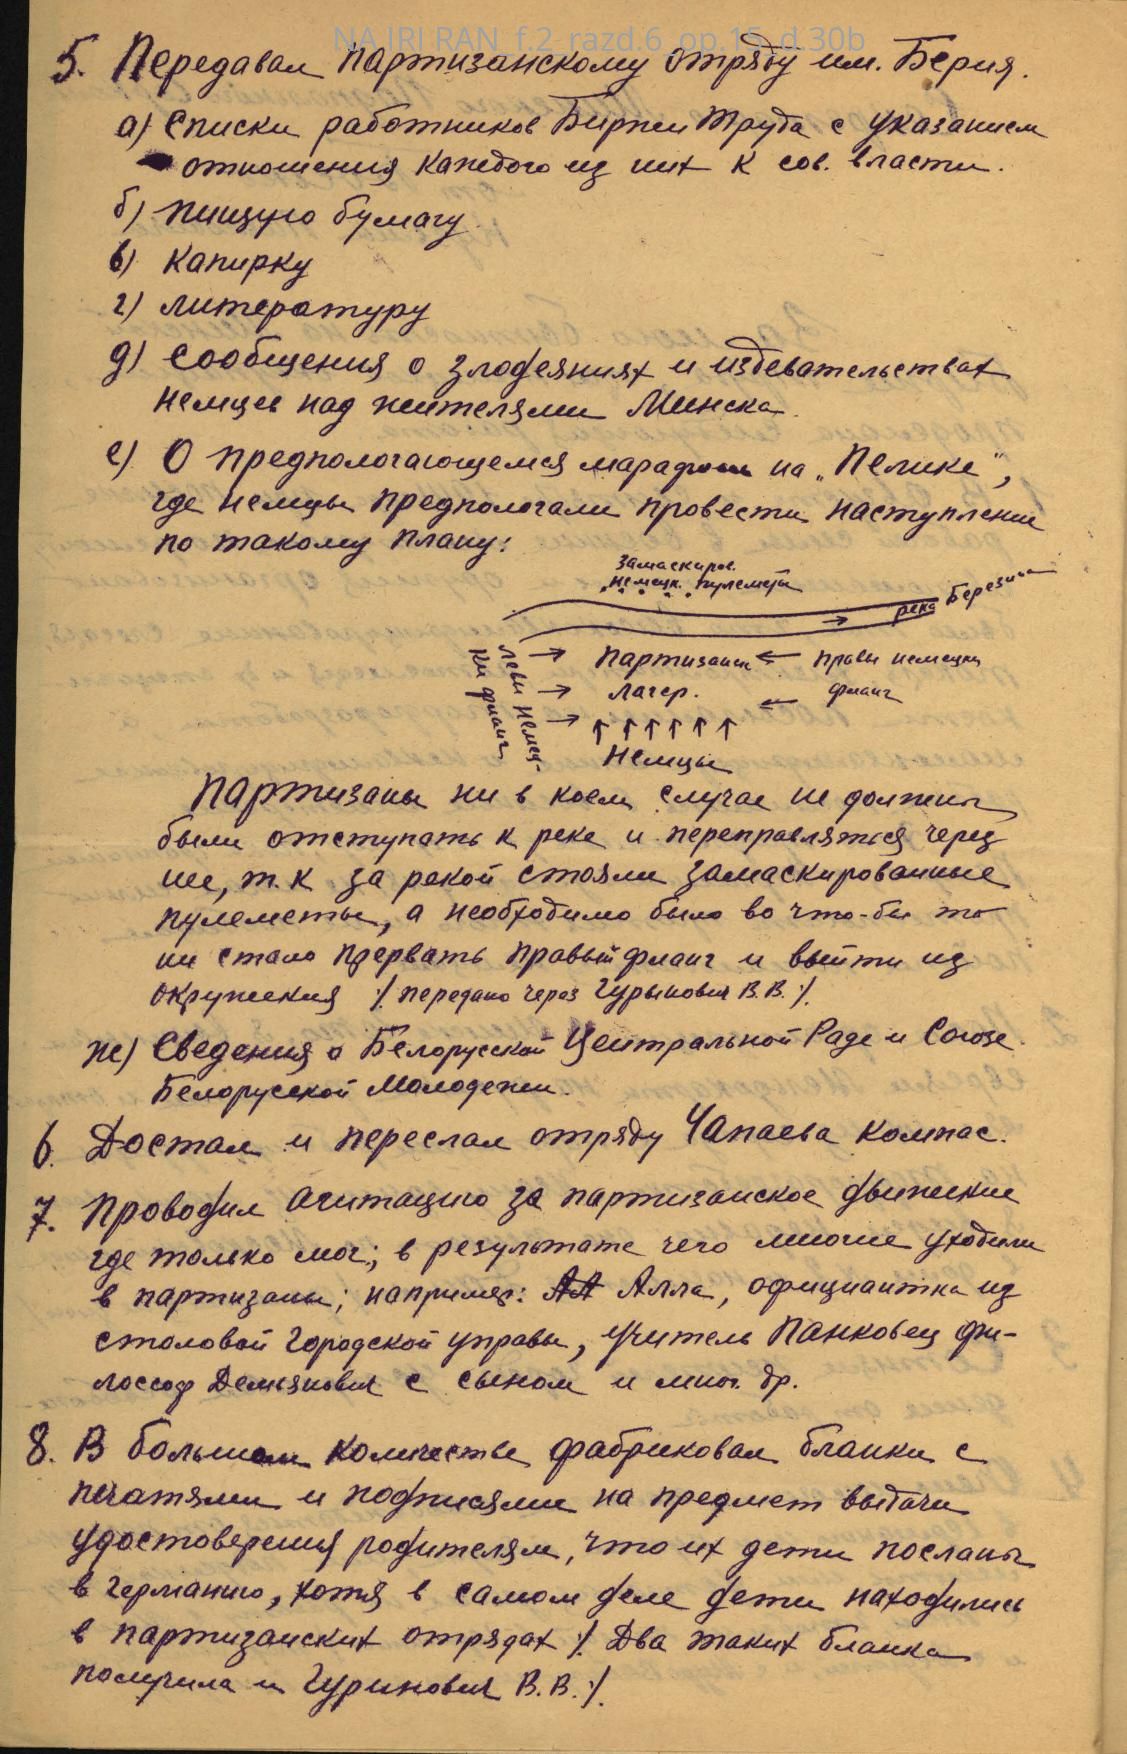 NA IRI RAN_f.2_razd.6_op.15_d.30b
5. Передавал партизанскому отряду им. Берия.
а) Списки работников Биржи Труда с указанием
отношения каждого из них к сов. власти.
б) пищую бумагу
в) капирку
г) литературу
д) сообщения о злодеяниях и издевательствах
немцев над жителями Минска.
е) О предпологающемся марафоне на „Пелике",
где немцы предпологали провести наступление
по такому плану:
замаскиров.
немецк. пулеметы
река Березина
Партизанск
← правы немецки
лагер.
фланг
левы немец-
ки фланг
Немцы
Партизаны ни в коем случае не должны
были отступать к реке и переправляться через
нее, т.к за рекой стояли замаскированные
пулеметы, а необходимо было во что-бы то
ни стало прервать правый фланг и выйти из
окружения /. передано через Гурынович В.В. ./.
ж) Сведения о Белорусской Центральной Раде и Союзе
Белорусской Молодежи.
6. Достал и переслал отряду Чапаева компас.
7. Проводил агитацию за партизанское движение
где только мог; в результате чего многие уходили
в партизаны; например: Алла, официантка из
столовой Городской управы, учитель Панковец фи-
лософ Демьянович с сыном и мног. др.
8. В большом количестве фабриковал бланки с
печатями и подписями на предмет выдачи
удостоверения родителям, что их дети посланы
в Германию, хотя в самом деле дети находились
в партизанских отрядах /. Два таких бланка
получила и Гуринович В.В. ./.